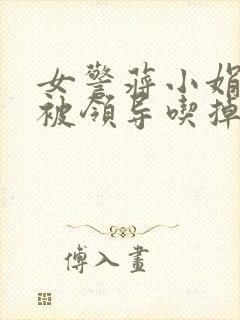 女警蒋小娟
被领导喫掉
傅入画